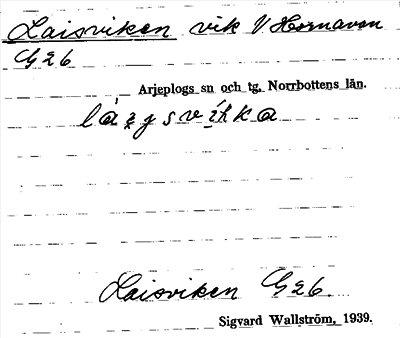 Laisviken vik V Hornavan
G26
Arjeplogs sn och tg, Norrbottens län.
Laisviken G26.
Sigvard Wallström, 1939.